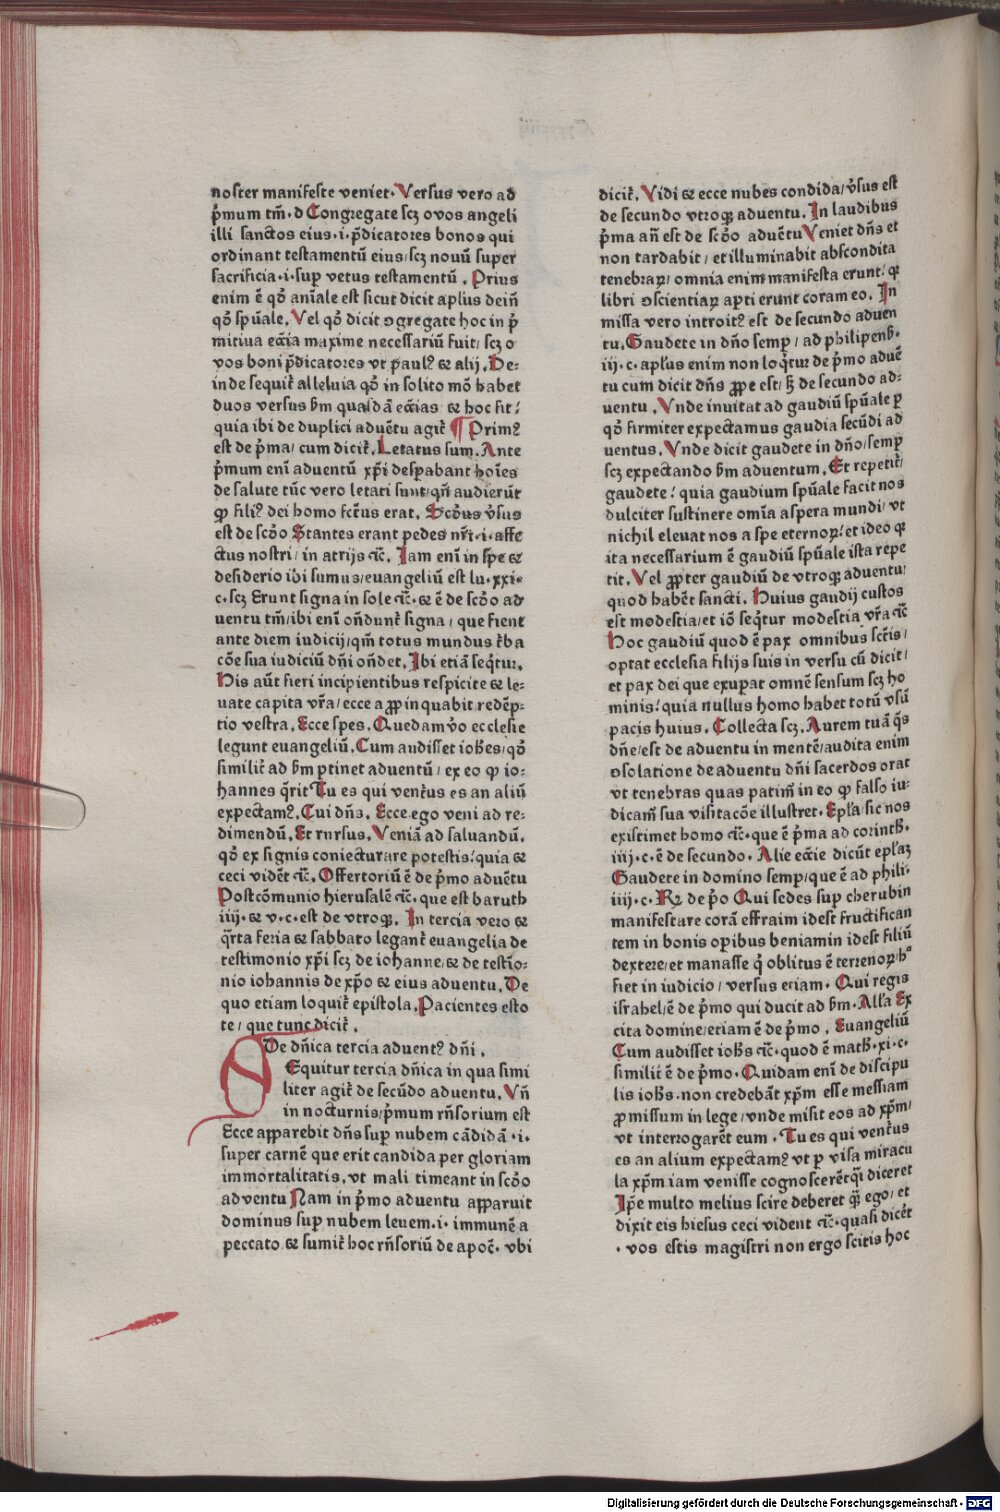 noster manifeste veniet. Versus vero ad
p̄mum tm̄. d Congregate scꝫ o vos angeli
illi sanctos eius .i. p̄dicatores bonos qui
ordinant testamentū eius/ scꝫ nouū super
sacrificia .i. sup̱ vetus testamentū. Prius
enim ē qđ aīale est sicut dicit apl̄us deiñ
qđ sp̄uale. Vel qđ dicit ꝯgregate hoc in p̄
mitiua ecc̄ia maxime necessariū fuit/ scꝫ o
vos boni p̄dicatores vt paul⁹ ⁊ alij. De-
inde sequit̄ alleluia qđ in solito mō habet
duos versus ẜm quasdā ecc̄ias ⁊ hoc fit:
quia ibi de duplici aduētu agit̄ ¶ Prim⁹
est de p̄ma/ cum dicit̄. Letatus sum. Ante
p̄mum enī aduentū xp̄i desp̱abant hoīes
de salute tūc vero letati sunt/ qn̄ audierūt
ꝙ fili⁹ dei homo fc̄tus erat. Scđus ꝟsus
est de scđo Stantes erant pedes nr̄i .i. affe
ctus nostri/ in atrijs ⁊c̄. Iam enī in spe ⁊
desiderio ibi sumus/ euangeliū est lu. xxi.
c. scꝫ Erunt signa in sole ⁊c̄. ⁊ ē de scđo ad
uentu tm̄/ ibi enī on̄dunt̄ signa/ que fient
ante diem iudicij/ qm̄ totus mundus t̄ba
cōe sua iudiciū dn̄i on̄det. Ibi etiā seq̄tur.
His aūt fieri incipientibus respicite ⁊ le-
uate capita vr̄a/ ecce aꝓpinquabit redēp-
tio vestra. Ecce spes. Quedam ꝟo ecclesie
legunt euangeliū. Cum audisset ioh̄es/ qđ
similit̄ ad ẜm ꝑtinet aduentū/ ex eo ꝙ io-
hannes q̄rit Tu es qui ventus es an aliū
expectam⁹. Cui dn̄s. Ecce ego veni ad re-
dimendū. Et rursus. Veniā ad saluandū.
qđ ex signis coniecturare potestis: quia ⁊
ceci vidēt ⁊c̄. Offertoriū ē de p̄mo aduētu
Postcōmunio hierusalē ⁊c̄. que est baruth
iiij. ⁊ v. c. est de vtroqꝫ. In tercia vero ⁊
q̄rta feria ⁊ sabbato legant̄ euangelia de
testimonio xp̄i scꝫ de iohanne/ ⁊ de testīo-
nio iohannis de xp̄o ⁊ eius aduentu. De
quo etiam loquit̄ epistola. Pacientes esto
te/ que tunc dicit̄.
De dn̄ica tercia aduent⁹ dn̄i.
Equitur tercia dn̄ica in qua simi
liter agit̄ de secūdo aduentu. Vn̄
in nocturnis/ p̄mum rn̄sorium est
Ecce apparebit dn̄s sup̱ nubem cādidā .i.
super carnē que erit candida per gloriam
immortalitatis. vt mali timeant in scđo
aduentu Nam in p̄mo aduentu apparuit
dominus sup̱ nubem leuem .i. immunē a
peccato ⁊ sumit̄ hoc rn̄soriū de apoc̄. vbi
dicit̄. Vidi ⁊ ecce nubes condida/ ꝟsus est
de secundo vtroqꝫ aduentu. In laudibus
p̄ma an̄ est de scđo aduētu Veniet dn̄s et
non tardabit/ et illuminabit abscondita
tenebraꝝ/ omnia enim manifesta erunt: qꝛ
libri ꝯscientiaꝝ apti erunt coram eo. In
missa vero introit⁹ est de secundo aduen
tu. Gaudete in dn̄o semp̱/ ad philipenß.
iij. c. apl̄us enim non loq̄tur de p̄mo aduē
tu cum dicit dn̄s ꝓpe est/ ß de secundo ad-
uentu. Vnde inuitat ad gaudiū sp̄uale ꝑ
qđ firmiter expectamus gaudia secūdi ad
uentus. Vnde dicit gaudete in dn̄o/ semp̱
scꝫ expectando ẜm aduentum. Et repetit̄/
gaudete: quia gaudium sp̄uale facit nos
dulciter sustinere om̄ia aspera mundi/ vt
nichil eleuat nos a spe eternoꝝ: et ideo qꝛ
ita necessarium ē gaudiū sp̄uale ista repe
tit. Vel ꝓpter gaudiū de vtroqꝫ aduentu:
quod habēt sancti. Huius gaudij custos
est modestia/ et iō seq̄tur modestia vr̄a ⁊c̄
Hoc gaudiū quod ē pax omnibus sct̄is/
optat ecclesia filijs suis in versu cū dicit/
et pax dei que exupat omnē sensum scꝫ ho
minis: quia nullus homo habet totū vsū
pacis huius. Collecta scꝫ. Aurem tuā q̄s
dn̄e/ est de aduentu in mentē/ audita enim
ꝯsolatione de aduentu dn̄i sacerdos orat
vt tenebras quas patim̄ in eo ꝙ falso iu-
dicam̄ sua visitacōe illustret. Epl̄a/ sic nos
existimet homo ⁊c̄. que ē p̄ma ad corinth̄.
iiij. c. ē de secundo. Alie ecc̄ie dicūt epl̄aꝫ
Gaudete in domino semp̱/ que ē ad phili.
iiij. c. R⁊ de p̄o Qui sedes sup̱ cherubin
manifestare corā effraim idest fructifican
tem in bonis opibus beniamin idest filiū
dextere/ et manasse q̄ oblitus ē terrenoꝝ/ hᵒ
fiet in iudicio/ versus etiam. Qui regis
israhel/ ē de p̄mo qui ducit ad ẜm. All̄a Ex
cita domine/ etiam ē de p̄mo. Euangeliū
Cum audisset ioh̄s ⁊c̄. quod ē math̄. xi. c.
similit̄ ē de p̄mo. Quidam enī de discipu
lis ioh̄s. non credebāt xp̄m esse messiam
ꝓmissum in lege/ vnde misit eos ad xp̄m/
vt interrogarēt eum. Tu es qui ventus
es an alium expectam⁹ vt ꝑ visa miracu
la xp̄m iam venisse cognoscerēt qui diceret
Ip̄e multo melius scire deberet q̄ꝫ ego/ et
dixit eis hiesus ceci vident ⁊c̄. quasi dicēt
. vos estis magistri non ergo scitis hoc
Digitalisierung gefördert durch die Deutsche Forschungsgemeinschaft - DFG